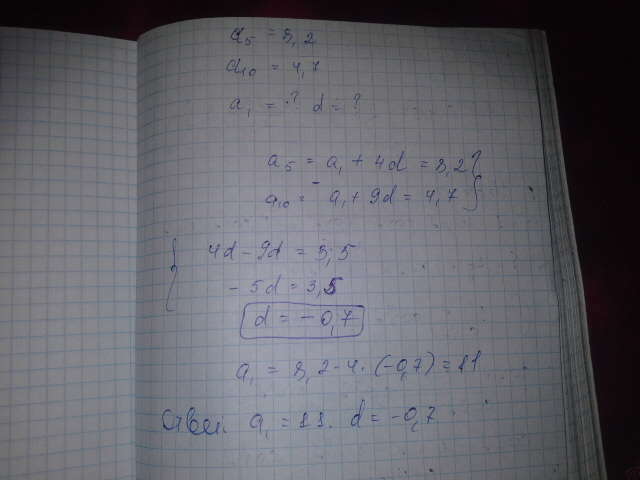 a₅ = 8,2
a₁₀ = 4,7
a₁ = ? d = ?
a₅ = a₁ + 4d = 8,2 }
a₁₀ = ⁻ a₁ + 9d = 4,7 }
{ 4d - 9d = 3,5
- 5d = 3,5
d = -0,7
a₁ = 8,2 - 4 · (-0,7) = 11
Ответ: a₁ = 11. d = -0,7